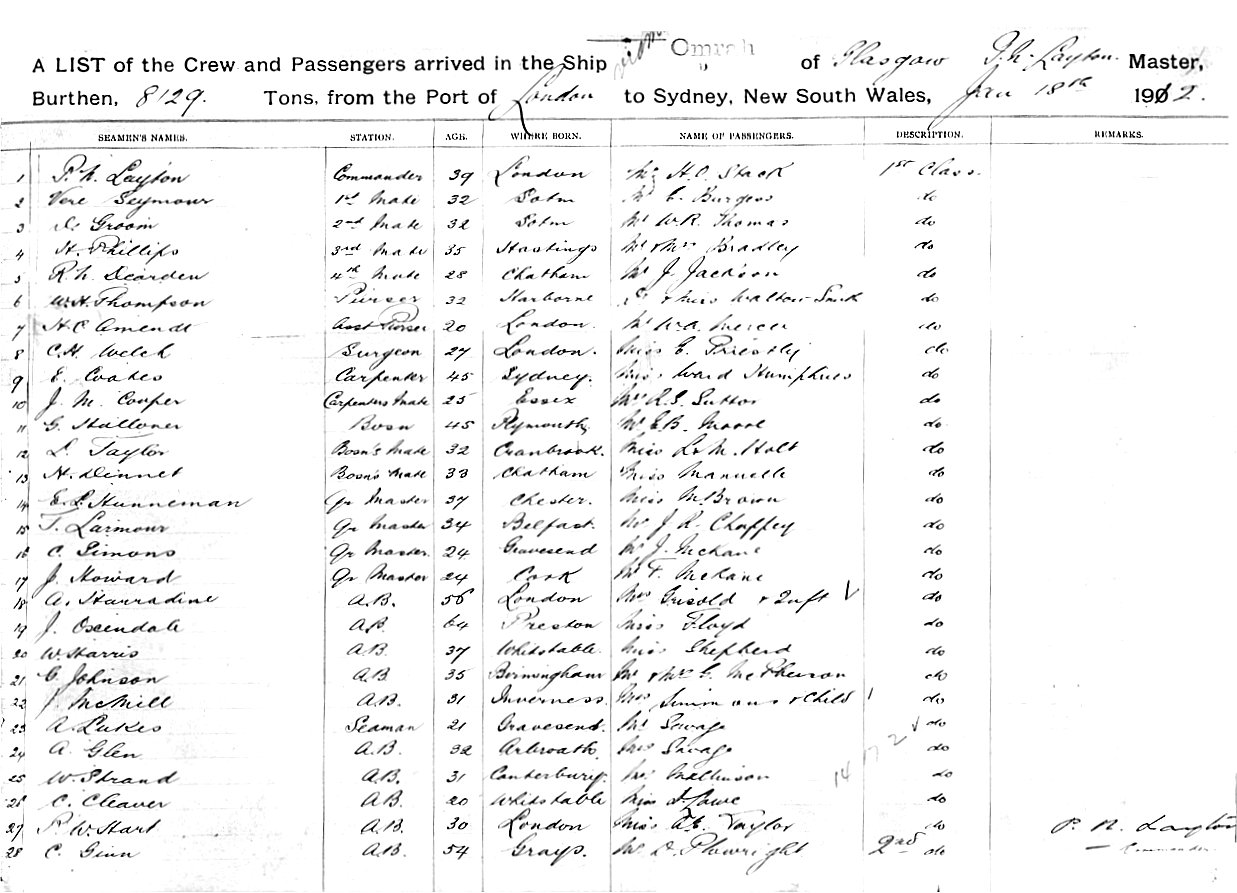 Omrah
A LIST of the Crew and Passengers arrived in the Ship " of Glasgow P. N. Layton Master,
Burthen, 8129. Tons, from the Port of London to Sydney, New South Wales, Jan 18th 1912.
SEAMEN'S NAMES. STATION. AGE. WHERE BORN. NAME OF PASSENGERS. DESCRIPTION. REMARKS.
1 P. N. Layton Commander 39 London H. O. Stack 1st Class.
2 Vere Seymour 1st Mate 32 Sotm C. Burgess do
3 Groom 2nd Mate 32 Sotm Mr W. R. Thomas do
4 H. Phillips 3rd Mate 35 Hastings Mr & Mrs Bradley do
5 R. N. Dearden 4th Mate 28 Chatham Mr J. Jackson do
6 W. H. Thompson Purser 32 Harborne & Miss Walton Smith do
7 H. C. Amendt Asst Purser 20 London. Mr W. A. Mercer do
8 C. H. Welch Surgeon 27 London. Miss E. Priestly do
9 E. Coates Carpenter 45 Sydney. Miss Ward Humphries do
10 J. M. Couper Carpenters Mate 25 Essex R. S. Suttor do
11 G. Halloner Bosn 45 Plymouth Mr E. B. Moore do
12 L. Taylor Bosn's Mate 32 Cranbrook. Miss L. M. Holt do
13 H. Dinnet Bosn's Mate 33 Chatham Miss Manuelle do
14 E. L. Hunneman Qr Master 37 Chester. Miss M. Brown do
15 T. Larmour Qr Master 34 Belfast. Mr J. R. Chaffey do
16 C. Simons Qr Master. 24 Gravesend Mr J. McKane do
17 J. Howard Qr Master 24 Cork Mr F. McKane do
18 A. Harradine A.B. 56 London Mrs Grisold & Inft do
19 J. Oxendale A.B. 64 Preston Miss Floyd do
20 W. Harris A.B. 37 Whitstable. Miss Shepherd do
21 C. Johnson A.B. 35 Birmingham Mr & Mrs C. McPherson do
22 J. McMill A.B. 31 Inverness. Mrs Simmons & Child 1 do
23 A. Lukes Seaman 21 Gravesend. Mr Savage do
24 A. Glen A.B. 32 Arbroath. Mrs Savage do
25 W. Strand A.B. 31 Canterbury. Mallinson 14 17 2 do
26 C. Cleaver A.B. 20 Whitstable Miss Lowe do
27 P. W. Hart A.B. 30 London Miss A. E. Taylor do P. N. Layton
28 C. Ginn A.B. 54 Grays. Mr D. Plowright 2nd do Commander